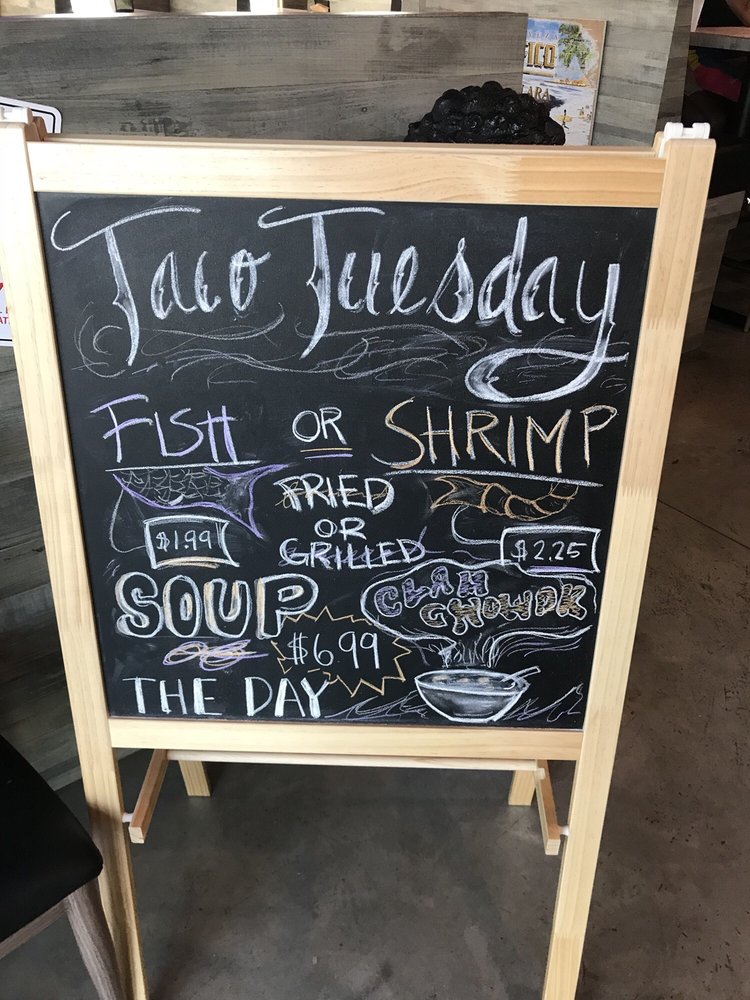 Taco Tuesday
FISH OR SHRIMP
FRIED
OR
GRILLED
$1.99
$2.25
SOUP
OF
THE DAY
$6.99
CLAM
CHOWDR
ICO
ARA